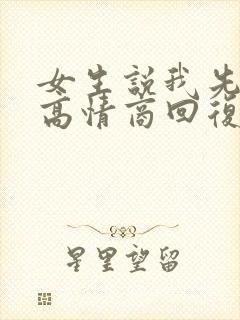 女生說我先
高情商回復
星里望留